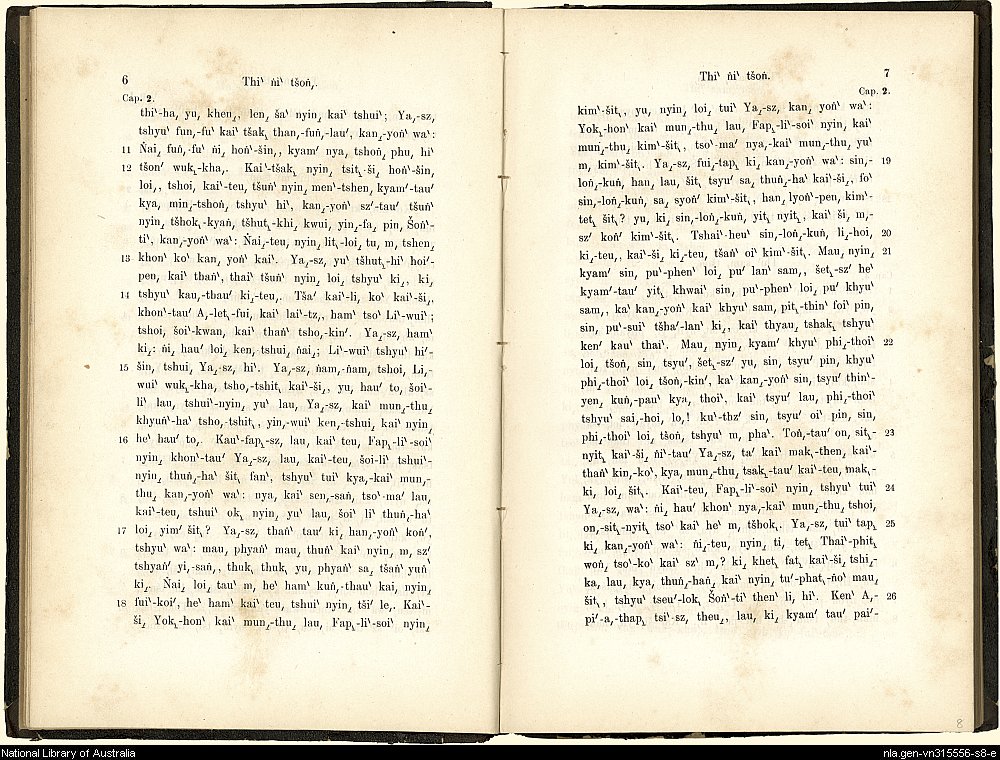 6
Thiˋ ńiˋ tšoń͵.
Cap. 2.
thiˋ-ha, yu, khen͵, len͵ šaˋ nyin, kaiˋ tshuiˋ; Ya͵-sz,
tshyuˋ fun͵-fuˋ kaiˋ tšak͵ than͵-fuń͵-lauˊ, kan͵-yońˋ waˋ:
11 Ńai͵ fuń͵-fuˋ ńi͵ hońˋ-šin͵, kyamˊ nya, tshoń͵ phu, hiˋ
12 tšonˊ wuk͵-kha͵. Kaiˋ-tšak͵ nyin͵ tsit͵-ši͵ hońˋ-šin,
loi͵, tshoi, kaiˋ-teu, tšuńˋ nyin͵ menˋ-tshen, kyamˊ-tauˊ
kya, min͵-tshoń͵ tshyuˋ hiˋ, kan͵-yońˋ szˊ-tauˊ tšuńˋ
nyin, tšhok͵-kyań, tšhut͵-khi, kwui, yin͵-fa, pin, Šońˋ-
tiˋ, kan͵-yońˋ waˋ: Ńai͵-teu, nyin͵ lit͵-loi͵ tu, m, tshen͵
13 khonˋ koˋ kan͵ yońˋ kaiˋ. Ya͵-sz, yuˋ tšhut͵-hiˋ hoiˊ-
pen, kaiˋ thańˋ, thaiˋ tšuńˋ nyin͵ loi͵ tshyuˋ ki͵, ki͵
14 tshyuˋ kau͵-thauˊ ki͵-teu͵. Tšaˊ kaiˋ-li, koˋ kaiˋ-ši͵,
khonˋ-tauˊ A͵-let͵-fui, kaiˋ laiˋ-tz͵, hamˋ tsoˋ Liˋ-wuiˋ;
tshoi, šoiˋ-kwan, kaiˋ thańˋ tsho͵-kinˊ. Ya͵-sz, hamˋ
ki͵: ńi͵ hauˊ loi͵ ken͵-tshui͵ ńai͵; Liˋ-wuiˋ tshyuˋ hiˊ-
15 šin, tshui, Ya͵-sz, hiˋ. Ya͵-sz, ńam͵-ńam, tshoi, Li͵-
wuiˋ wuk͵-kha, tsho͵-tshit͵ kaiˋ-ši͵, yu, hauˊ to, šoiˋ-
liˋ lau, tshuiˋ-nyin͵ yuˋ lau, Ya͵-sz, kaiˋ mun͵-thu͵
khyuńˋ-haˋ tsho͵-tshit͵, yin͵-wuiˋ ken͵-tshui, kaiˋ nyin͵
16 heˋ hauˊ to͵. Kauˋ-fap͵-sz, lau, kaiˋ teu, Fap͵-liˋ-soiˋ
nyin, khonˋ-tauˊ Ya͵-sz, lau, kaiˋ-teu, šoi-liˋ tshuiˋ-
nyin, thuń͵-haˋ šit͵ fanˋ, tshyuˋ tuiˋ kya͵-kaiˋ mun͵-
thu͵ kan͵-yońˋ waˋ: nya, kaiˋ sen͵-sań, tsoˋ-maˊ lau,
kaiˋ-teu, tshuiˋ ok͵ nyin͵ yuˋ lau, šoiˋ liˋ thuń͵-haˋ
17 loi͵ yimˊ šit͵? Ya͵-sz, thańˋ tauˊ ki͵ han͵-yońˋ końˊ,
tshyuˋ waˋ: mau, phyańˋ mau, thuńˋ kaiˋ nyin, m, szˊ
tshyańˊ yi͵-sań͵, thuk, thuk, yu, phyańˋ sa͵ tšańˋ yuń
ki͵. Ńai͵ loi͵ tauˋ m, heˋ hamˋ kuń͵-thauˋ kai, nyin͵
18 fuiˋ-koiˊ, heˋ hamˋ kaiˋ teu, tshui nyin͵ tšiˊ le͵. Kaiˋ-
ši͵ Yok͵-honˋ kaiˋ mun͵-thu͵ lau, Fap͵-liˋ-soiˋ nyin͵
Thiˋ ńiˋ tšoń.
7
Cap. 2.
kimˋ-šit͵, yu, nyin͵ loi͵ tuiˋ Ya͵-sz, kan͵ yońˋ waˋ:
Yok͵-honˋ kaiˋ mun͵-thu lau, Fap͵-liˋ-soiˋ nyin, kaiˋ
mun͵-thu͵ kimˋ-šit͵, tsoˋ-maˊ nya͵-kaiˋ mun͵-thu, yuˋ
m, kimˋ-šit͵. Ya͵-sz, fui͵-tap͵ ki͵ kan͵-yońˋ waˋ: sin͵- 19
loń͵-kuń, han͵ lau, šit͵ tsyuˊ sa͵ thuń͵-haˋ kaiˋ-ši͵, foˋ
sin͵-loń͵-kuń, sa͵ syońˊ kimˋ-šit͵, han͵ lyońˋ-pen, kimˋ-
tet͵ šit͵? yu, ki͵ sin͵-loń͵-kuń, yit͵ nyit͵, kaiˋ ši, m͵-
szˊ końˊ kimˋ-šit͵. Tshaiˋ-heuˋ sin͵-loń͵-kuń, li͵-hoi, 20
ki͵-teu͵, kaiˋ-ši, ki͵-teu, tšańˋ oiˋ kimˋ-šit͵. Mau, nyin͵ 21
kyamˊ sin, puˋ-phenˋ loi͵ puˊ lanˋ sam͵, šet͵-szˊ heˋ
kyamˊ-tauˊ yit͵ khwaiˋ sin, puˋ-phenˋ loi͵ puˊ khyuˋ
sam͵, kaˋ kan͵-yońˋ kaiˋ khyuˋ sam, pit͵-thinˋ foiˋ pin,
sin, puˋ-suiˋ tšhaˊ-lanˋ ki͵, kaiˋ thyau, tshak͵ tshyuˋ
kenˊ kauˋ thaiˋ. Mau, nyin͵ kyamˊ khyuˋ phi͵-thoiˋ 22
loi͵ tšoń, sin, tsyuˊ, šet͵-szˊ yu, sin, tsyuˊ pin, khyuˋ
phi͵-thoiˋ loi͵ tšoń͵-kinˊ, kaˋ kan͵-yońˋ sin, tsyuˊ thinˋ-
yen͵ kuń͵-pauˋ kya, thoiˋ, kaiˋ tsyuˊ lau, phi͵-thoiˋ
tshyuˋ sai͵-hoi, lo͵! kuˋ-thzˊ sin, tsyuˊ oiˋ pin, sin,
phi͵-thoiˋ loi͵ tšoń, tshyuˋ m, phaˋ. Toń͵-tauˊ on, sit͵- 23
nyit͵ kaiˋ-ši, ńiˋ-tauˊ Ya͵-sz, taˊ kaiˋ mak͵-then, kaiˋ-
thańˋ kin͵-koˋ, kya, mun͵-thu͵ tsak͵-tauˊ kaiˋ-teu, mak͵-
ki, loi͵ šit͵. Kaiˋ-teu, Fap͵-liˋ-soiˋ nyin͵ tshyuˋ tuiˋ 24
Ya͵-sz, wa: ńi͵ hauˊ khonˋ nya͵-kaiˋ mun͵-thu, tshoi,
on͵-sit͵-nyit͵ tsoˋ kaiˋ heˋ m, tšhok͵. Ya͵-sz, tuiˋ tap͵ 25
ki͵ kan͵-yońˋ waˋ: ńi͵-teu, nyin͵ ti, tet͵ Thaiˋ-phit͵
woń͵ tsoˋ-koˋ kaiˋ szˋ m͵? ki͵ khet͵ fat͵ kaiˋ-ši͵ tshi͵-
ka, lau, kya, thuń͵-hań͵ kaiˋ nyin͵ tuˊ-phat͵-ńoˋ mau͵
šit͵, tshyuˋ tseuˊ-lok͵ Šońˋ-tiˋ thenˋ li, hiˋ. Kenˋ A͵- 26
piˊ-a͵-thap͵ tsiˋ-sz, theu͵, lau, ki͵ kyamˊ tauˊ paiˊ-
8
National Library of Australia
nla.gen-vn315556-s8-e